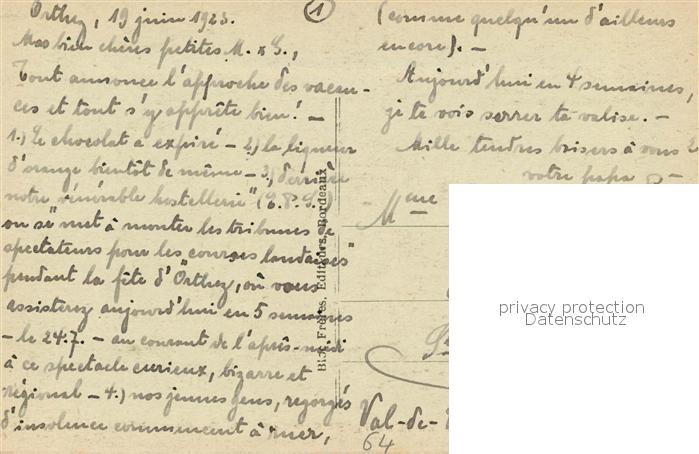 Orthez, 19 juin 1923.
Mes bien chères petites M. & S.,
Tout annonce l'approche des vacan-
ces et tout s'y apprête bien! —
1.) Le chocolat a expiré — 2.) la liqueur
d'orange bientôt de même — 3.) derrière
notre "vénérable hostellerie" (E.P.S.)
on se "met à monter les tribunes de
spectateurs pour les courses landaises"
pendant la fête d'Orthez, où vous
assisterez aujourd'hui en 5 semaines
— le 24.7. — au courant de l'après-midi
à ce spectacle curieux, bizarre et
régional — 4.) nos jeunes gens, regorgés
d'insolence commencent à ruer,
1
(comme quelqu'un d'ailleurs
encore). —
Aujourd'hui en 4 semaines,
je te vois serrer ta valise. —
Mille tendres baisers à vous 2
votre papa
Mme
Val-de-
64
Frères, Editeurs, Bordeaux
privacy protection
Datenschutz